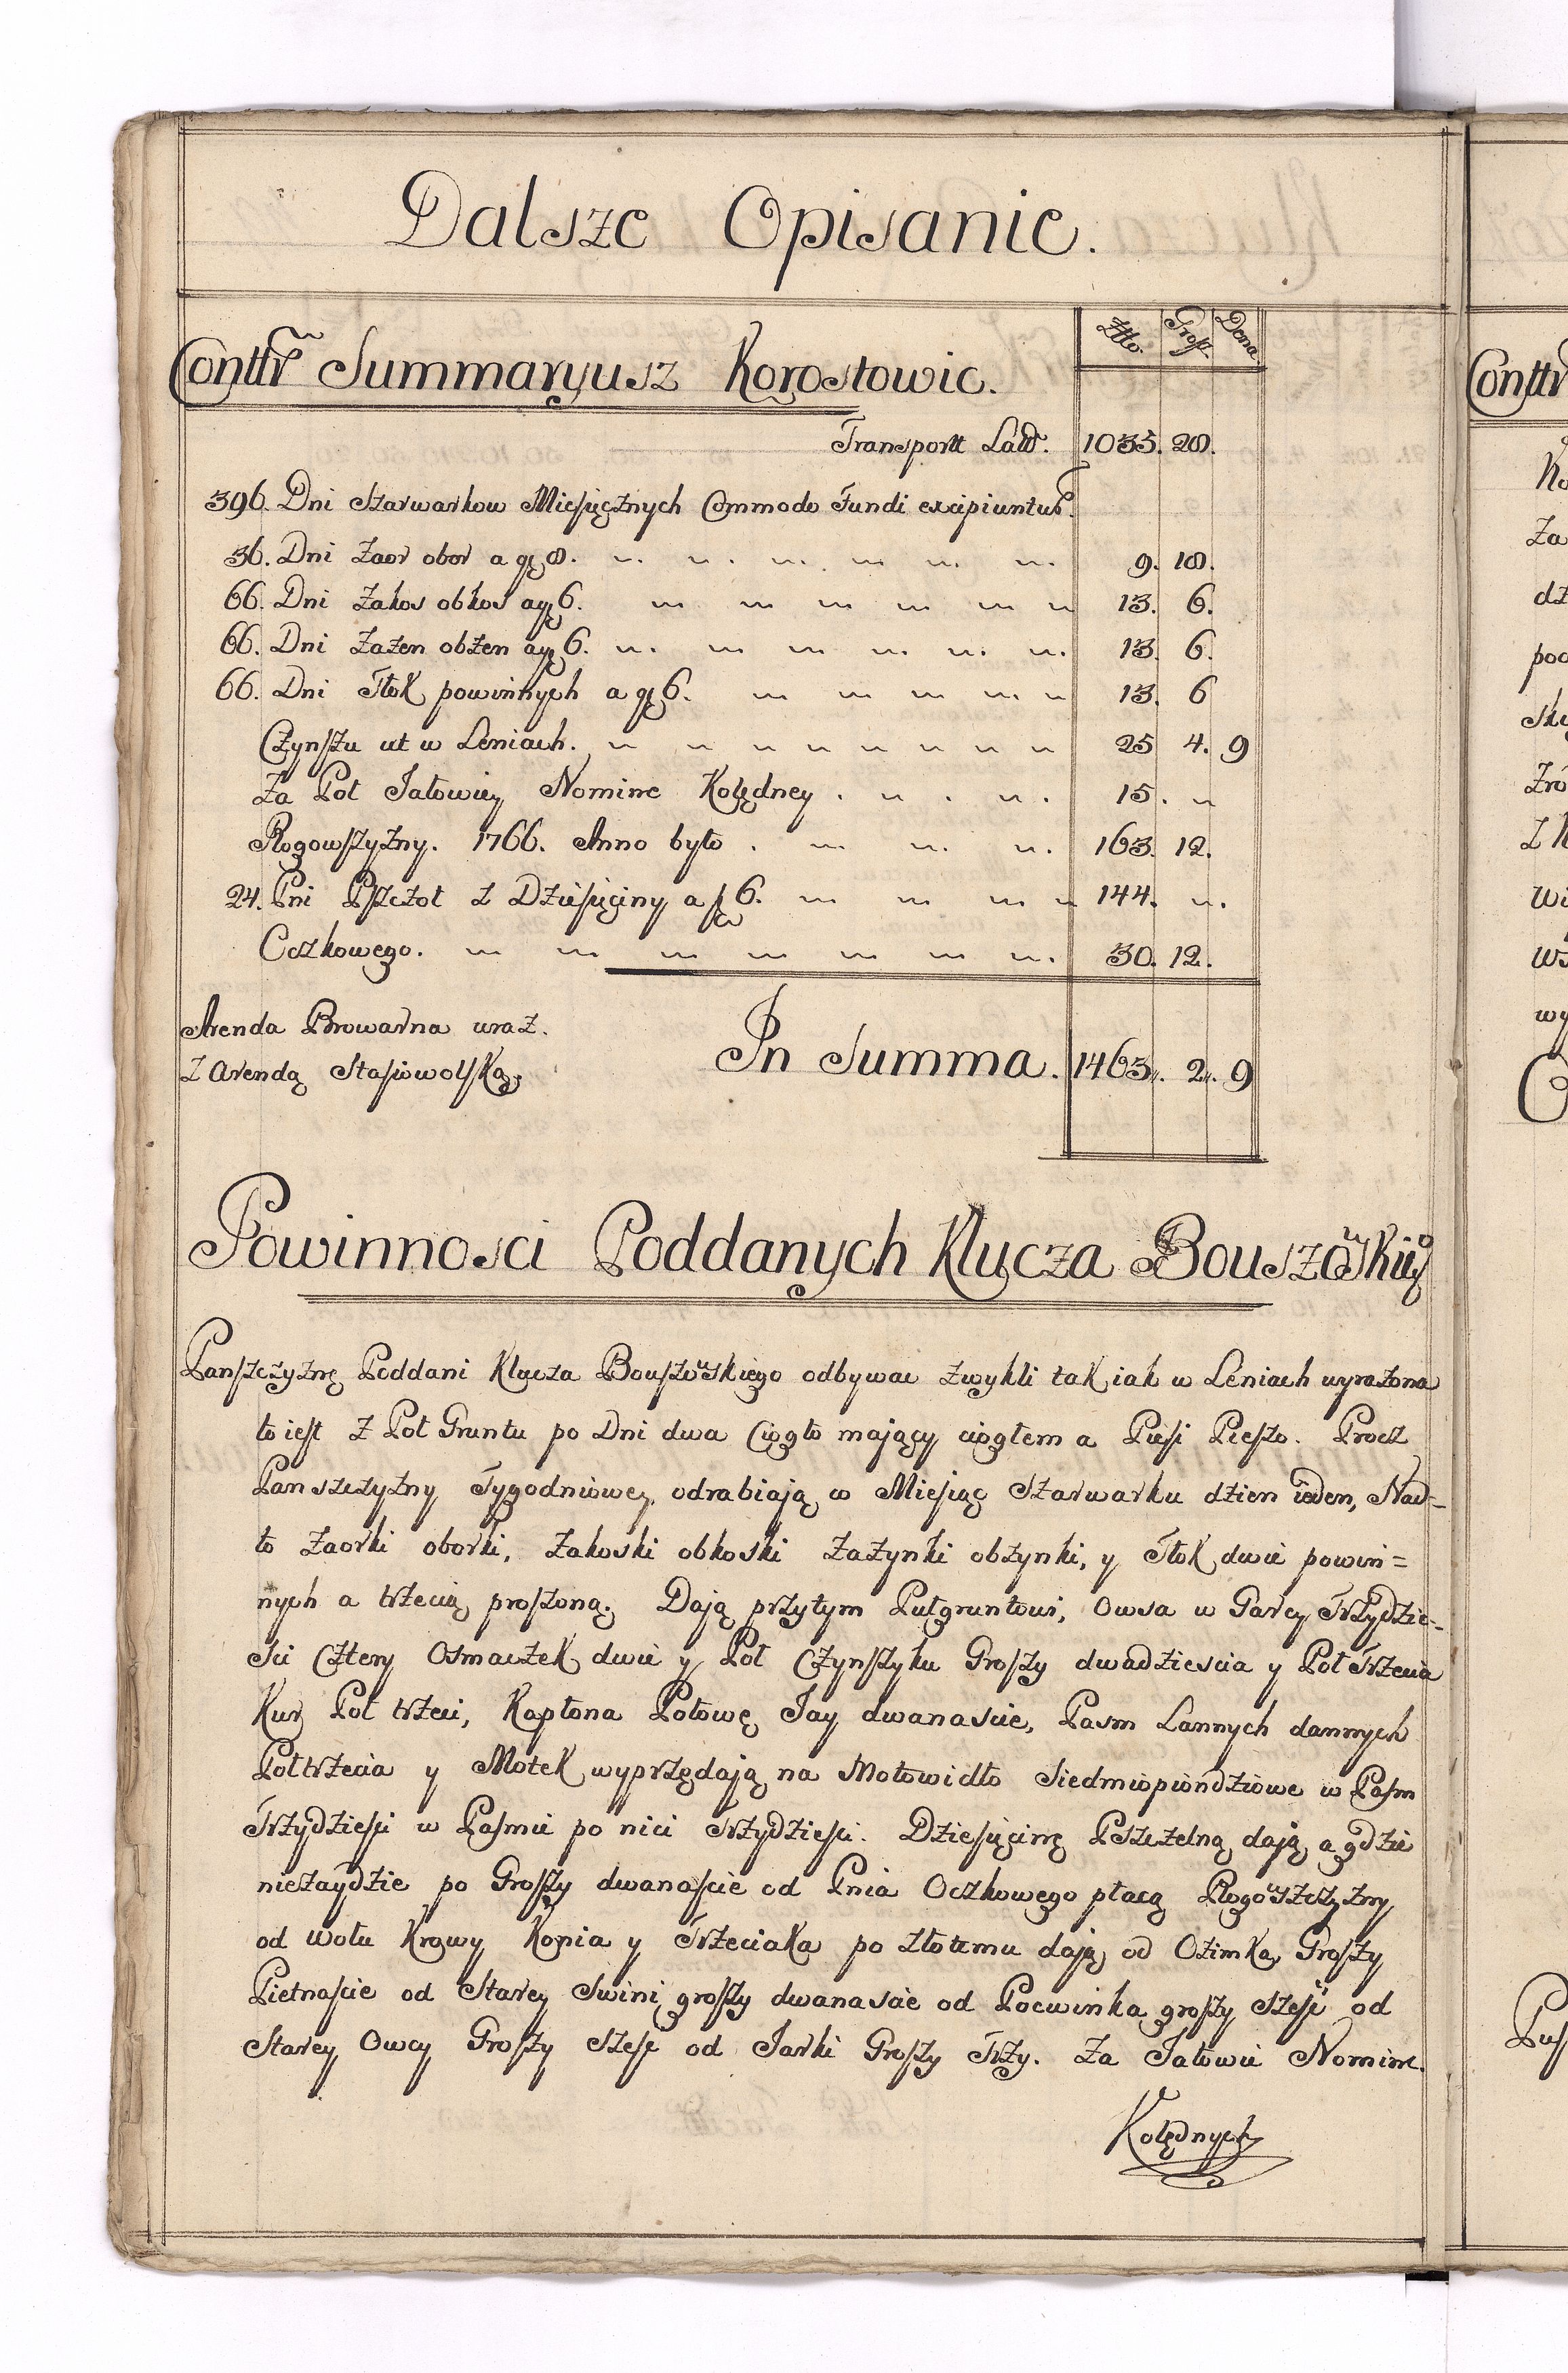 Dalsze Opisanie.
Złło. Grosz. Dena.
Conttr Summaryusz Korostowic.
Transportt Latt. 1035. 28.
396. Dni Szarwarkow Miesięcznych Commodo Fundi excipiuntur.
36. Dni Zaor obor a gr 8. 9. 18.
66. Dni Zakos obkos a gr 6. 13. 6.
66. Dni Zażen obżen a gr 6. 13. 6.
66. Dni Tłok powinnych a gr 6. 13. 6
Czynszu ut w Leniach. 25 4. 9
Za Poł Jałowicy Nomine Kolędney. 15.
Rogowszyzny. 1766. Anno było. 163. 12.
24. Pni Pszczoł z Dziesięciny a f 6. 144.
Oczkowego. 30. 12.
Arenda Browarna wraz.
Z Arendą Stasiowolską
In Summa. 1463. 2. 9
Powinnosci Poddanych Klucza Bouszowskie°
Panszczyznę Poddani Klucza Bouszowskiego odbywac zwykli tak iak w Leniach wyrażona
to iest z Poł Gruntu po Dni dwa Ciągło maiący ciągłem a Piesi Pieszo. Procz
Panszczyzny Tygodniowey, odrabiaią w Miesiąc Szarwarku dzien ieden, Nad=
to Zaorki oborki, Zakoski obkoski Zażynki obżynki, y Tłok dwie powin=
nych a trzecią proszoną. Daią przytym Pułgruntowi, Owsa w Garcy Trzydzie=
sci Cztery Osmaczek dwie y Poł Czynszyku Groszy dwadziescia y Poł Trzecia
Kur Poł trzeci, Kapłona Połowę Jay dwanascie, Pasm Lannych dannych
Połtrzecia y Motek wyprzędaią na Motowidło Siedmiopiondziowe w Pasm
Trzydziesci w Pasmie po nici Trzydziesci. Dziesięcinę Pszczelną daią, a gdzie
niezaydzie po Groszy dwanascie od Pnia Oczkowego płacą Rogowszczyzny
od Wołu Krowy Konia y Trzeciaka po złotemu daią, od Ozimka, Groszy
Pietnascie od Starey Swini groszy dwanascie od Pocwinka groszy szesc od
Starey Owcy Groszy szesc od Jarki Groszy Trzy. Za Jałowic Nomine
Kolędnych